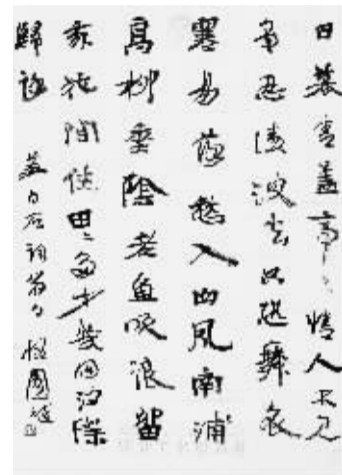 日暮青蓋亭〻情人不見
爭忍凌波去只恐舞衣
寒易落愁入西風南浦
高柳垂陰老魚吹浪留
我花間住田〻多少幾回沙際
歸路
姜白石詞